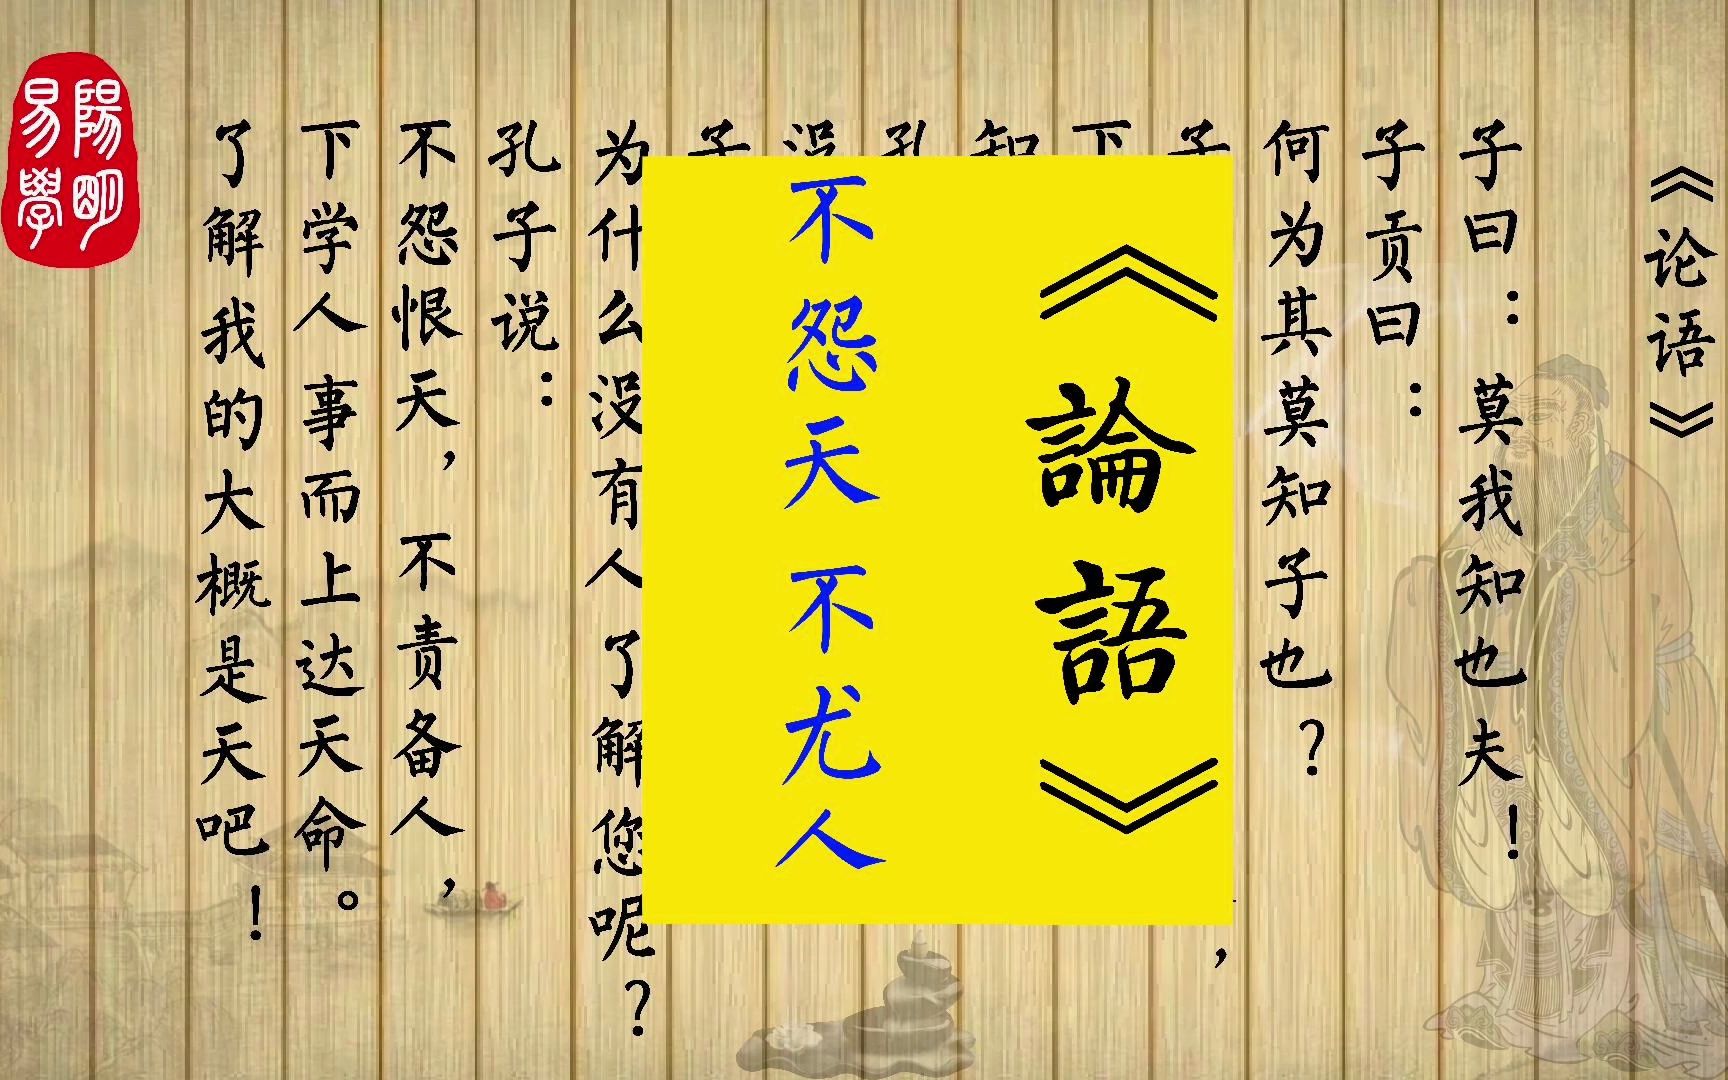 《论语》
子曰：莫我知也夫！
子贡曰：
何为其莫知子也？
《論語》
不怨天 不尤人
为什么没有人了解您呢？
孔子说：
不怨恨天，不责备人，
下学人事而上达天命。
了解我的大概是天吧！
陽明
易學